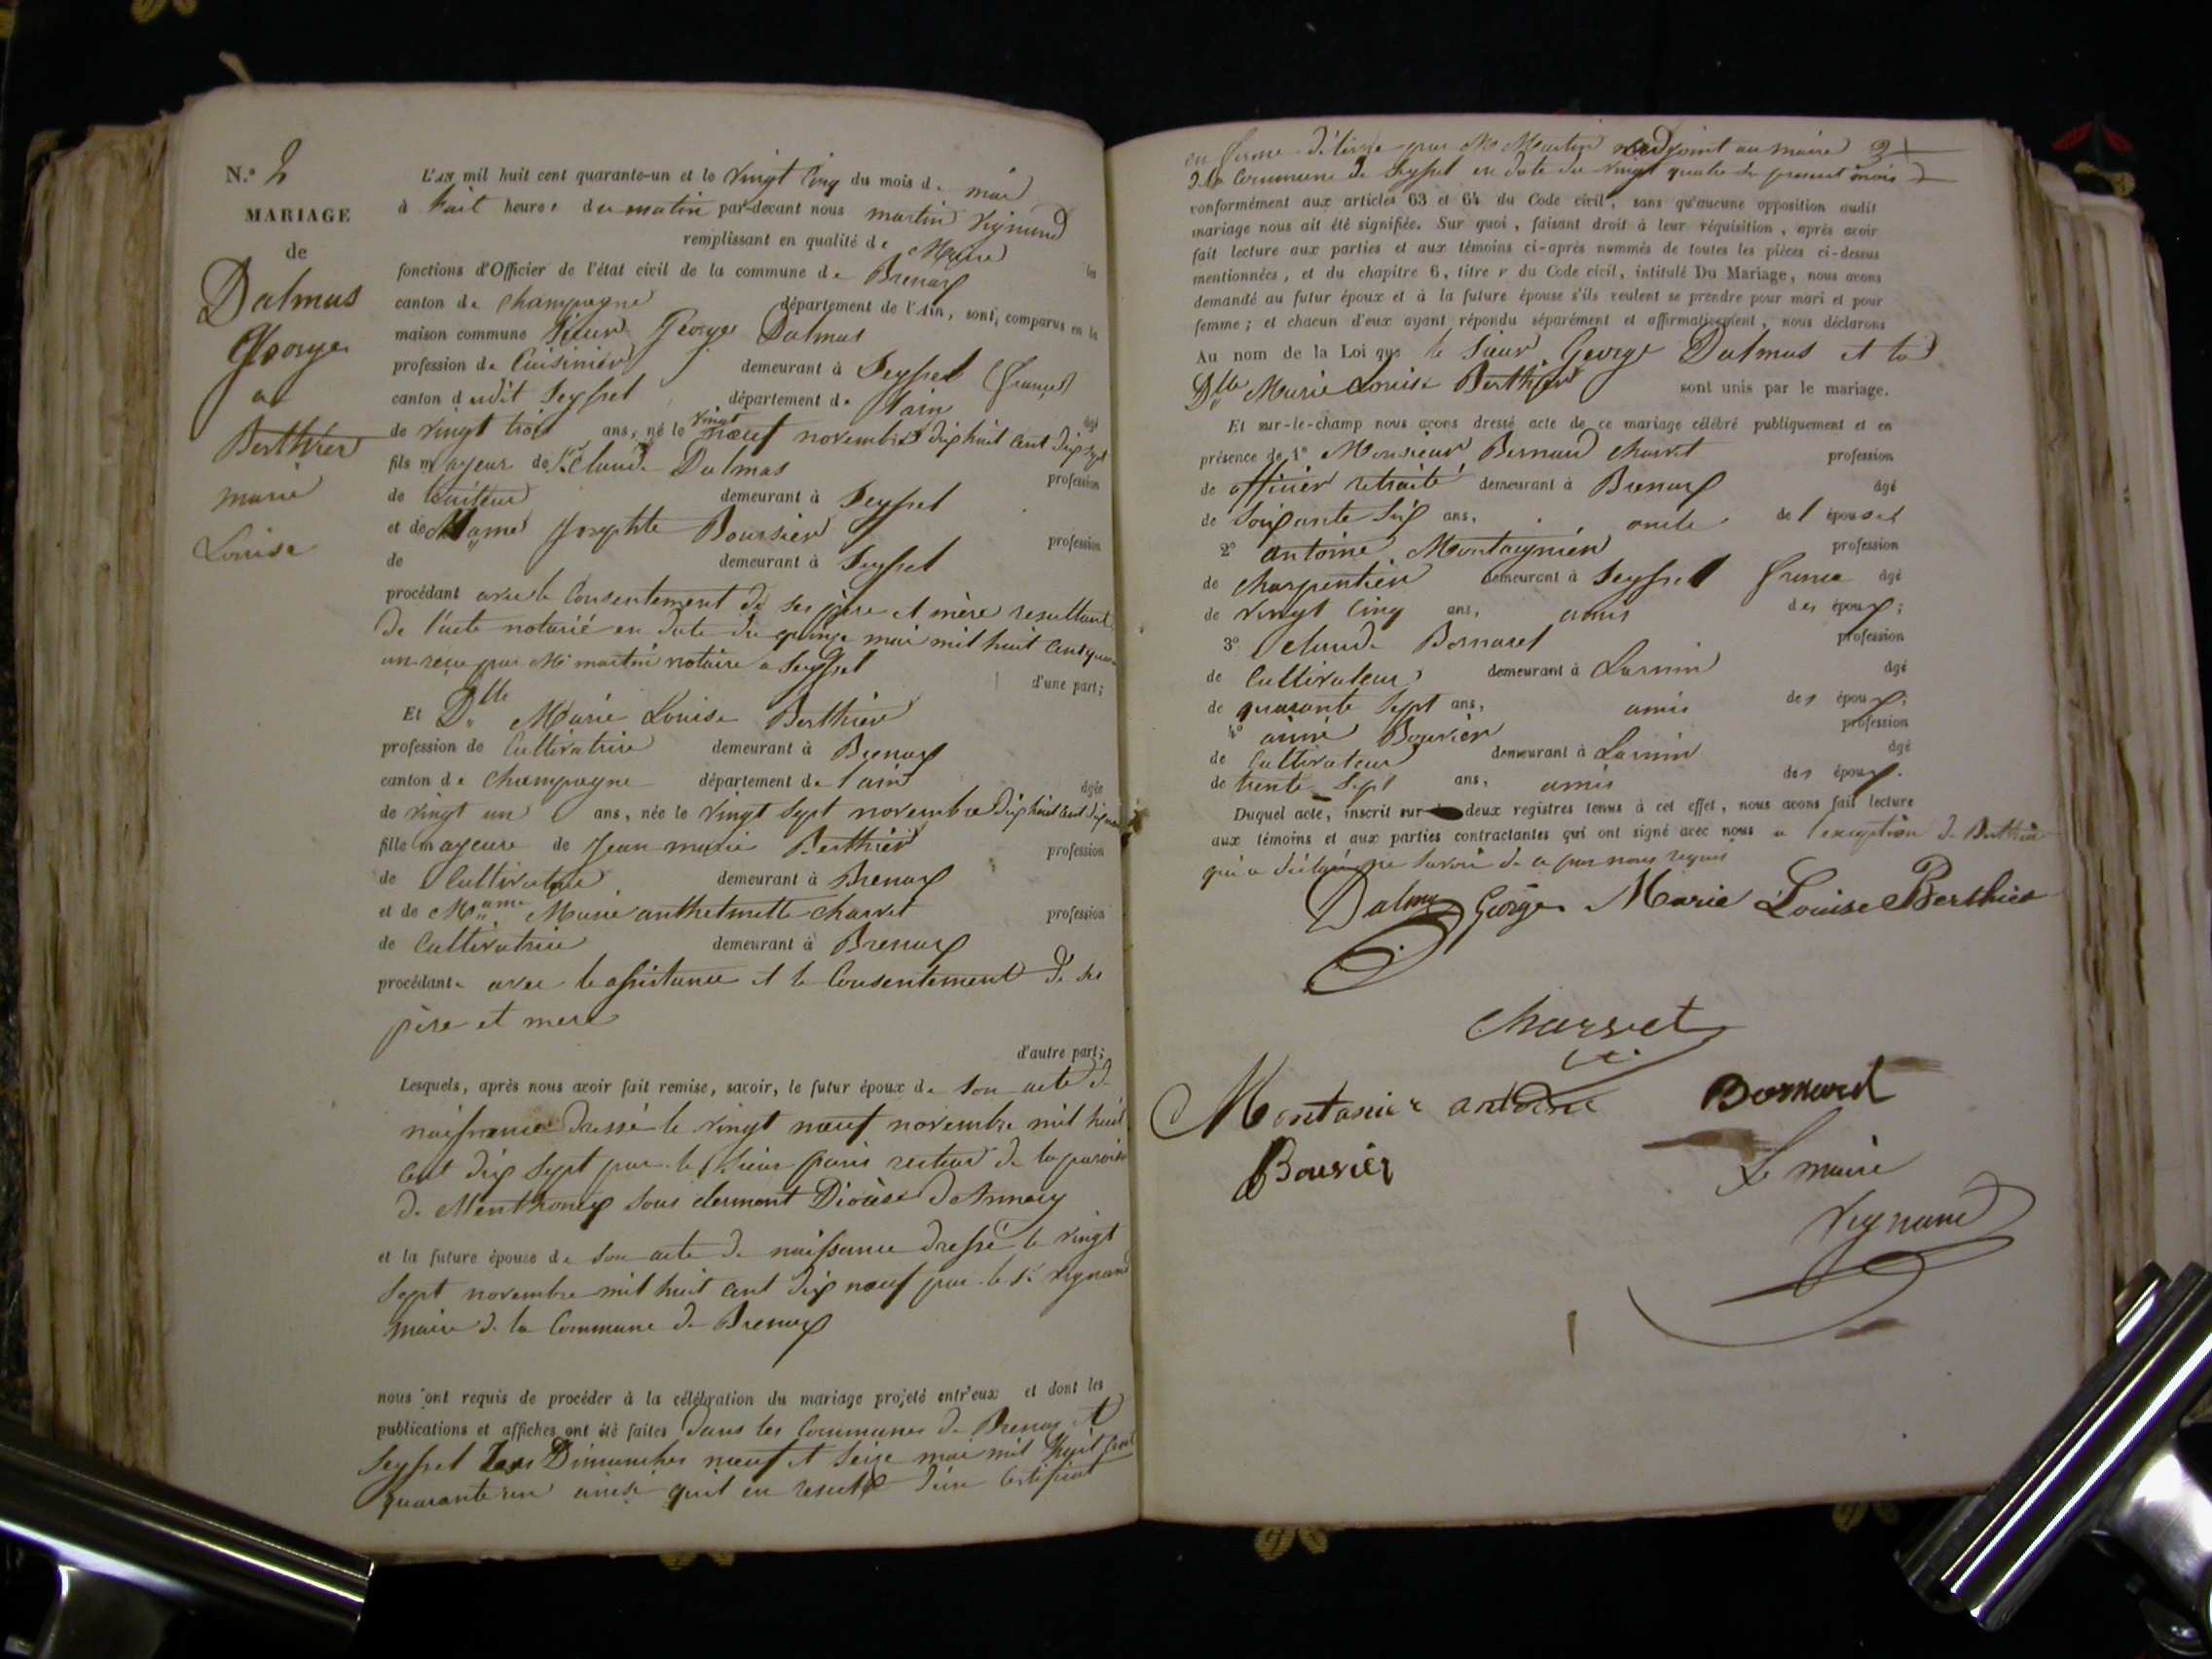 N.° 2
MARIAGE
de
Dalmas
George
a
Berthier
marie
Louise
L'AN mil huit cent quarante-un et le vingt cinq du mois de mai
à huit heures du matin par-devant nous martin Vignand
remplissant en qualité de Maire les
fonctions d'Officier de l'état civil de la commune de Brenaz
canton de Champagne département de l'Ain, sont comparus en la
maison commune Sieur George Dalmas
profession de Cuisinier demeurant à Seyssel (france)
canton dudit Seyssel département de l'ain âgé
de vingt trois ans, né le vingt neuf novembre dix huit cent dix sept
fils majeur de Sr Claude Dalmas profession
de demeurant à Seyssel
et de Mame Josephte Boursier profession
de demeurant à Seyssel
procédant avec le Consentement de ses père et mère resultant
de l'acte notarié en date du quinze mai mil huit cent quarante
un reçu par Me martin notaire a Seyssel
d'une part;
Et Dlle Marie Louise Berthier
profession de Cultivatrice demeurant à Brenaz
canton de Champagne département de l'ain âgée
de vingt un ans, née le vingt sept novembre dix huit cent dix neuf
fille majeure de Jean marie Berthier profession
de Cultivateur demeurant à Brenaz
et de Mame Marie anthelmette Charvet profession
de Cultivatrice demeurant à Brenaz
procédante avec le assistance et le Consentement de ses
père et mere
d'autre part;
Lesquels, après nous avoir fait remise, savoir, le futur époux de son acte de
naissance dressé le vingt neuf novembre mil huit
cent dix sept par le Sieur paris recteur de la paroisse
de Menthonex sous clermont Diocèse de Annecy
et la future épouse de son acte de naissance dressé le vingt
sept novembre mil huit cent dix neuf par le Sr Vignand
maire de la Commune de Brenaz
nous ont requis de procéder à la célébration du mariage projeté entr'eux et dont les
publications et affiches ont été faites dans les Communes de Brenaz et
Seyssel Les Dimanches neuf et seize mai mil huit cent
quarante un ainsi qu'il en resulte d'un Certificat
en forme délivré par Me Martin adjoint au maire
de la Commune de Seyssel en date du vingt quatre du present mois
conformément aux articles 63 et 64 du Code civil, sans qu'aucune opposition audit
mariage nous ait été signifiée. Sur quoi, faisant droit à leur réquisition, après avoir
fait lecture aux parties et aux témoins ci-après nommés de toutes les pièces ci-dessus
mentionnées, et du chapitre 6, titre v du Code civil, intitulé Du Mariage, nous avons
demandé au futur époux et à la future épouse s'ils veulent se prendre pour mari et pour
femme; et chacun d'eux ayant répondu séparément et affirmativement, nous déclarons
Au nom de la Loi que le Sieur George Dalmas et la
Dlle Marie Louise Berthier sont unis par le mariage.
Et sur-le-champ nous avons dressé acte de ce mariage célébré publiquement et en
présence de 1° Monsieur Bernard Charvet profession
de officier retraité demeurant à Brenaz âgé
de soixante six ans, oncle de l'épouse
2° antoine Montagnier profession
de charpentier demeurant à Seyssel france âgé
de vingt cinq ans, amis des époux;
3° Claude Bornarel profession
de Cultivateur demeurant à Larmin âgé
de quarante sept ans, amis des époux;
4° aimé Bouvier profession
de Cultivateur demeurant à Larmin âgé
de trente sept ans, amis des époux.
Duquel acte, inscrit sur deux registres tenus à cet effet, nous avons fait lecture
aux témoins et aux parties contractantes qui ont signé avec nous a l'exception de Berthier
qui a déclaré ne savoir de ce par nous requis
Dalmas George Marie Louise Berthier
Charvet
Montanier antoine Bornarel
Bouvier Le maire
Vignand